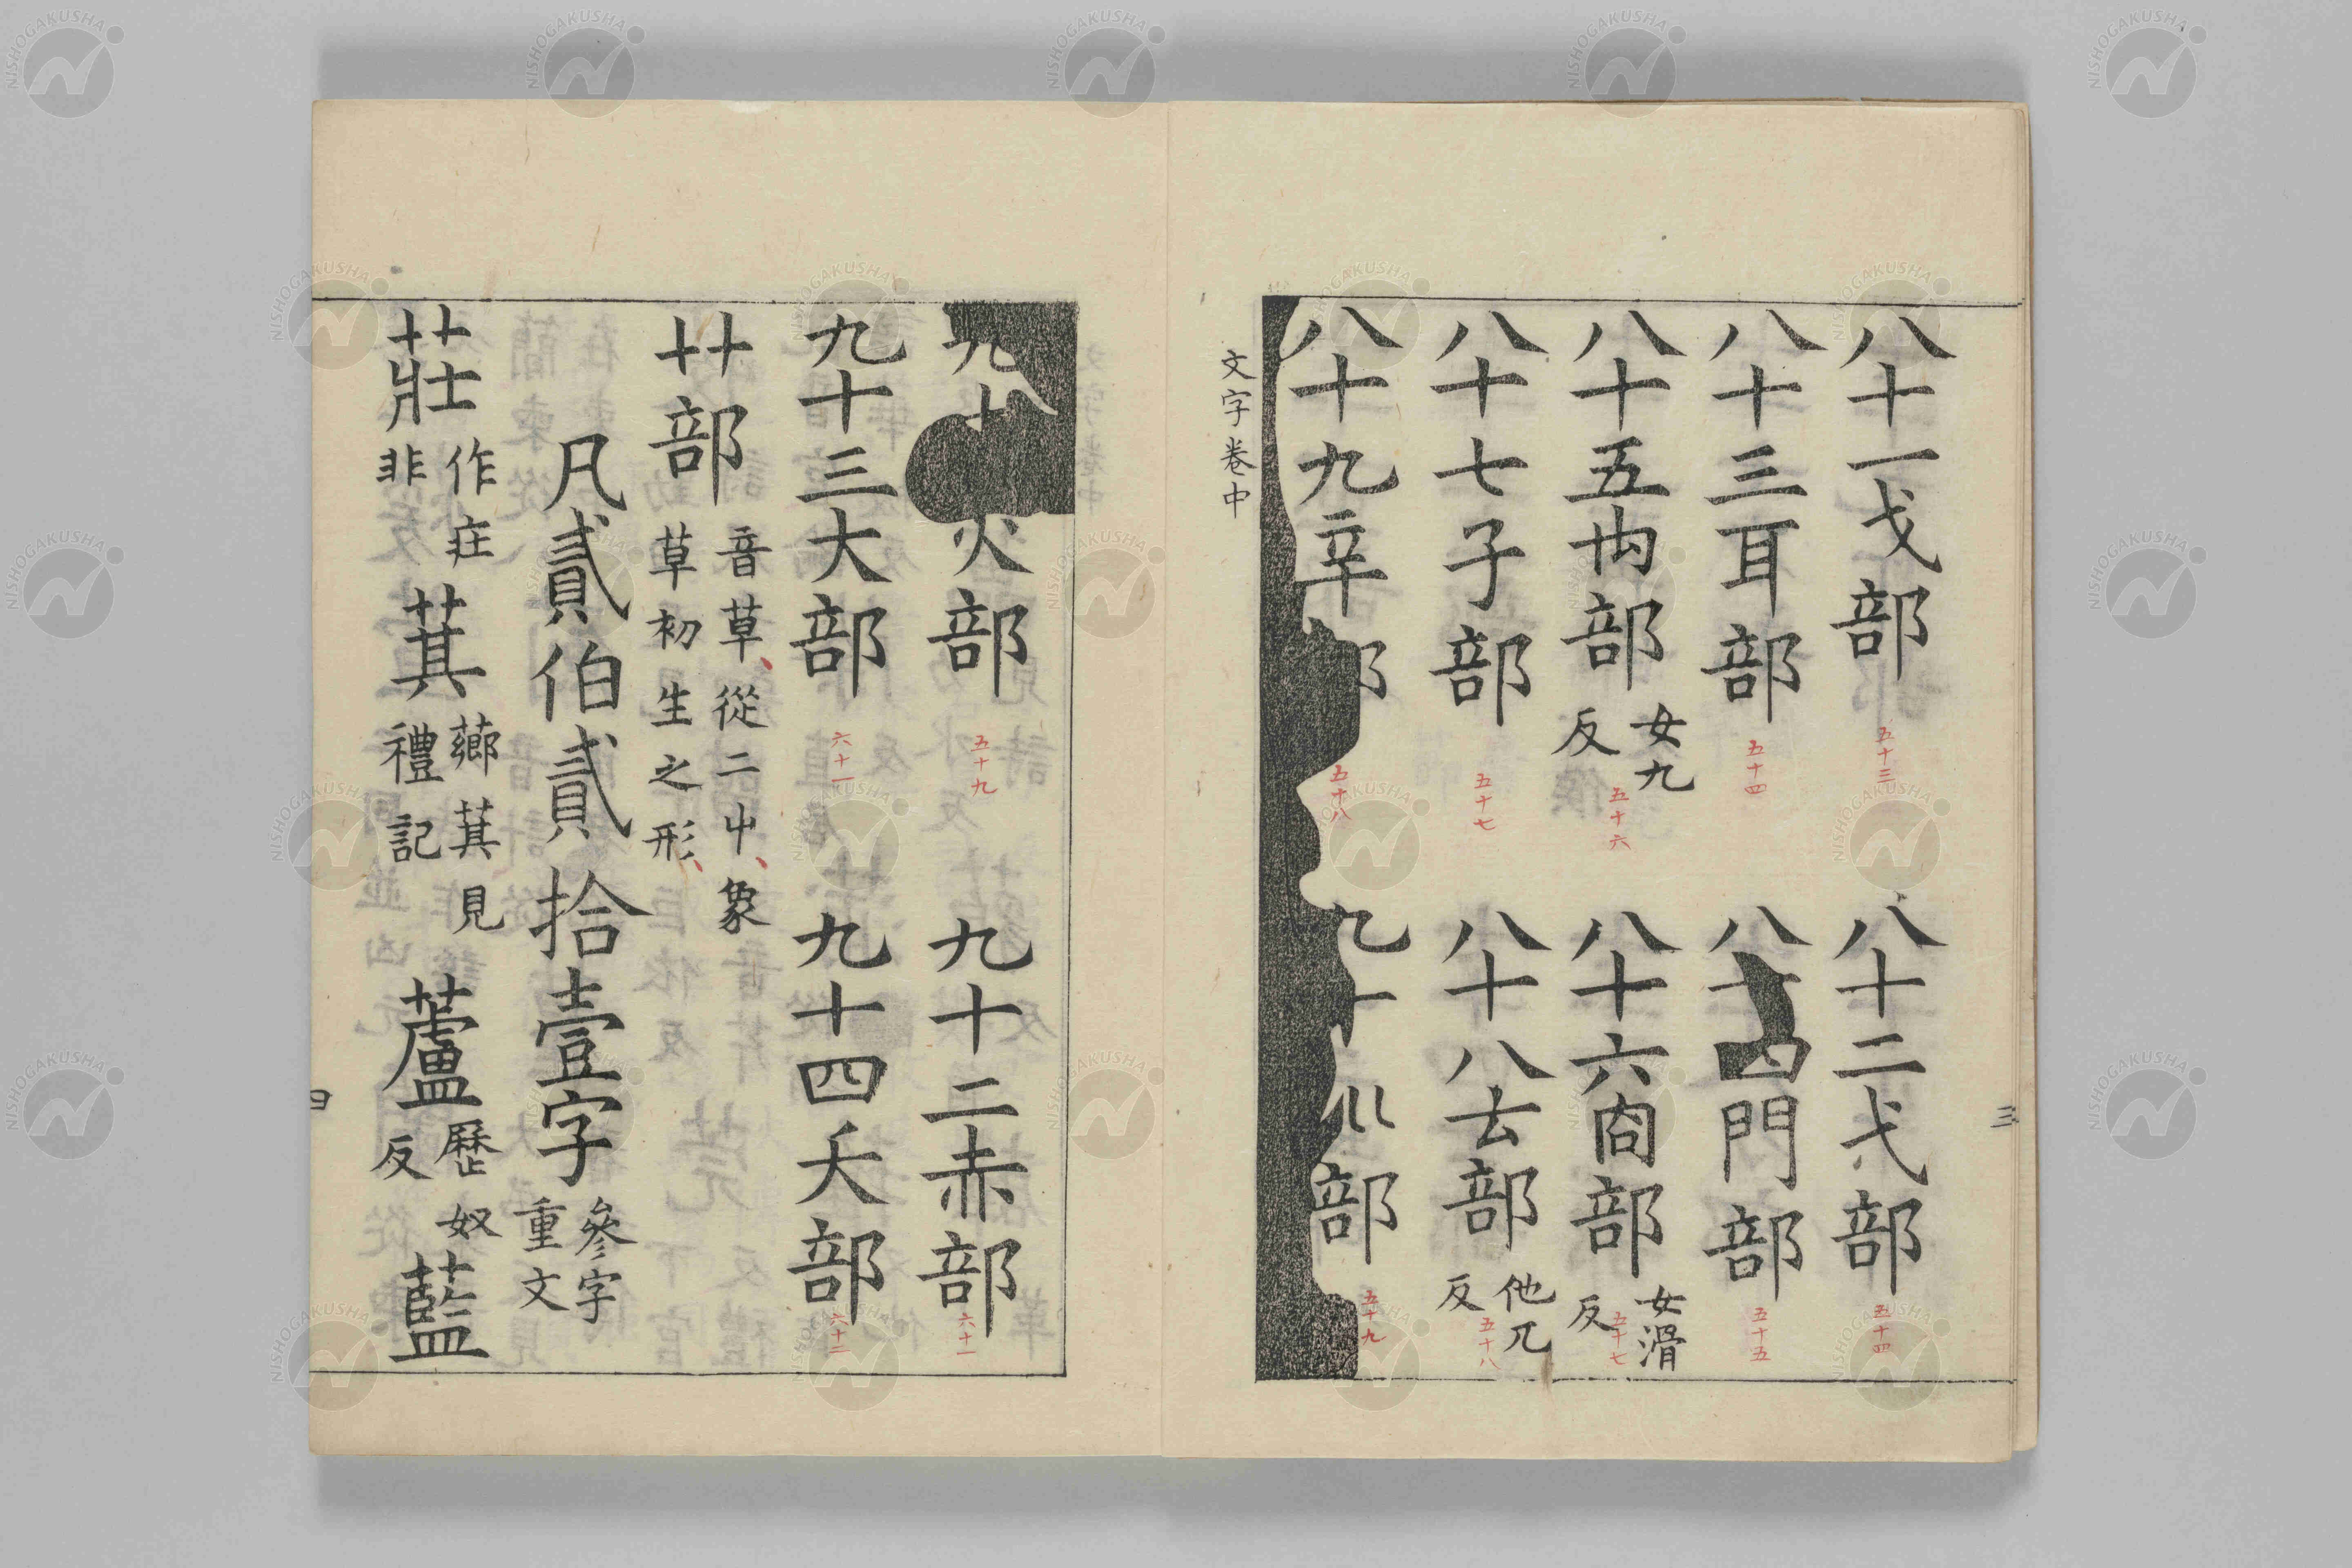 八十一戈部 五十三 八十二弋部 五十四
八十三耳部 五十四 八十四門部 五十五
八十五禸部 女九反 五十六 八十六㕯部 女滑反 五十七
八十七子部 五十七 八十八𠫓部 他兀反 五十八
八十九辛 五十八 九十 部 五十九
文字卷中
三
九十 火部 五十九 九十二赤部 六十一
九十三大部 六十一 九十四夭部 六十二
艹部 音草從二屮象草初生之形
凡貳伯貳拾壹字 參字重文
莊 作庄非 萁 薌萁見禮記 蘆 歷奴反 藍
四
NISHOGAKUSHA